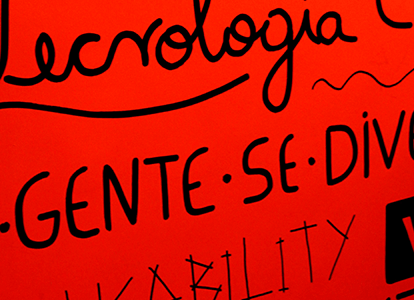 Tecnologia
·GENTE·SE·DIV
ABILITY